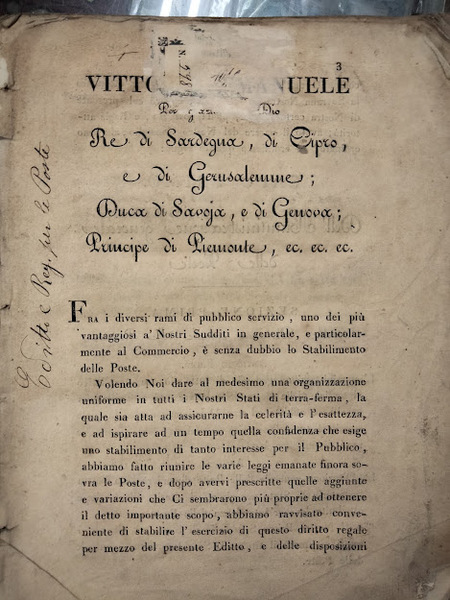 3
VITTO NUELE
Per gra Dio
Re di Sardegna, di Cipro,
e di Gerusalemme;
Duca di Savoja, e di Genova;
Principe di Piemonte, ec. ec. ec.
Editti e Reg. per le Poste
FRA i diversi rami di pubblico servizio, uno dei più
vantaggiosi a' Nostri Sudditi in generale, e particolar-
mente al Commercio, è senza dubbio lo Stabilimento
delle Poste.
Volendo Noi dare al medesimo una organizzazione
uniforme in tutti i Nostri Stati di terra-ferma, la
quale sia atta ad assicurarne la celerità e l'esattezza,
e ad ispirare ad un tempo quella confidenza che esige
uno stabilimento di tanto interesse per il Pubblico,
abbiamo fatto riunire le varie leggi emanate finora so-
vra le Poste, e dopo avervi prescritte quelle aggiunte
e variazioni che Ci sembrarono più proprie ad ottenere
il detto importante scopo, abbiamo ravvisato conve-
niente di stabilire l'esercizio di questo diritto regale
per mezzo del presente Editto, e delle disposizioni